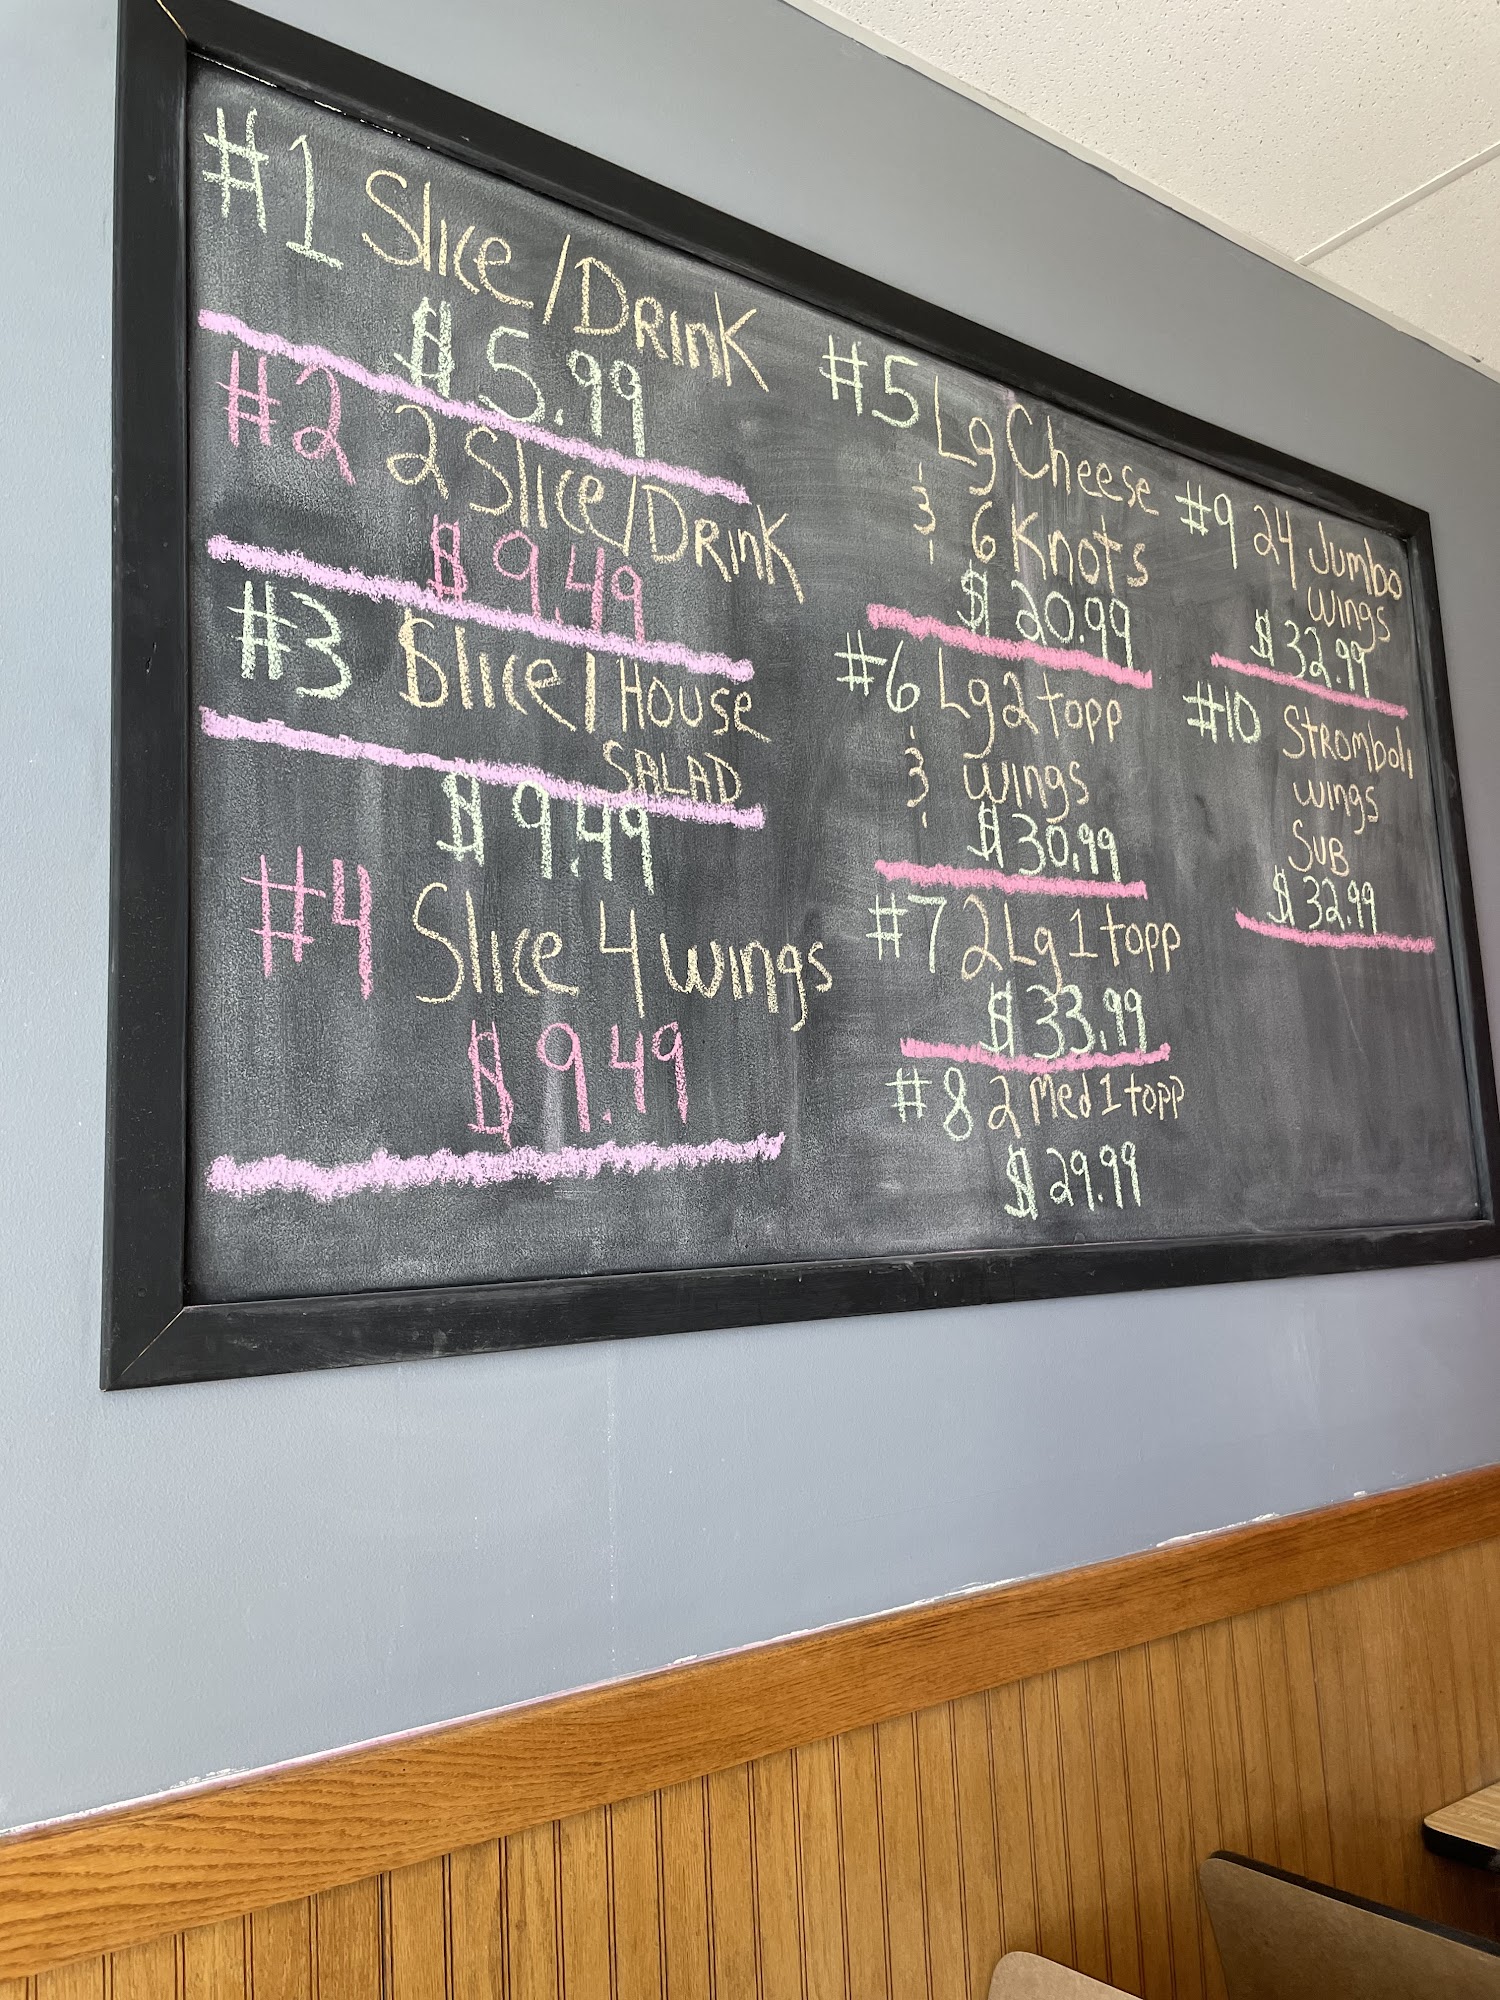 #1 Slice/Drink
$5.99
#2 2 Slice/Drink
$9.49
#3 Slice/House
Salad
$9.49
#4 Slice 4 wings
$9.49
#5 Lg Cheese
& 6 Knots
$20.99
#6 Lg 2 topp
& wings
$30.99
#7 2 Lg 1 topp
$33.99
#8 2 Med 1 topp
$29.99
#9 24 Jumbo
wings
$32.99
#10 Stromboli
wings
Sub
$32.99